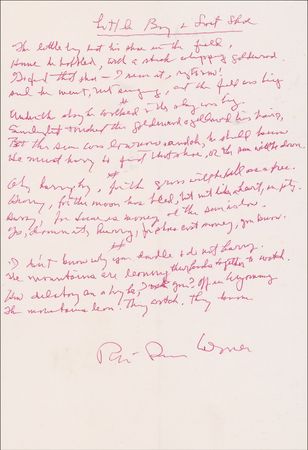 Little Boy & Lost Shoe
The little boy lost his shoe in the field,
Home he hobbled, with a stick whipping goldenrod.
Go find that shoe — I mean it, right now!
And he went, not singing, and the field was big.
*
Under the sky he walked and the sky was big.
Sunlight touched the goldenrod & yellowed his hair,
But the sun was low now and oh, he should know
He must hurry to find that shoe, or the sun will be down.
*
Oh, hurry, boy, for the grass will be tall as a tree.
Hurry, for the moon has bled, but not like a heart, in pity.
Hurry, for time is money & the sun is low.
Yes, damn it, hurry, for shoes cost money, you know.
*
I don't know why you dawdle & do not hurry.
The mountains are leaning their heads together to watch.
How dilatory can a boy be, I ask you? Off in Wyoming
The mountains lean. They watch. They know.
Robert Penn Warren